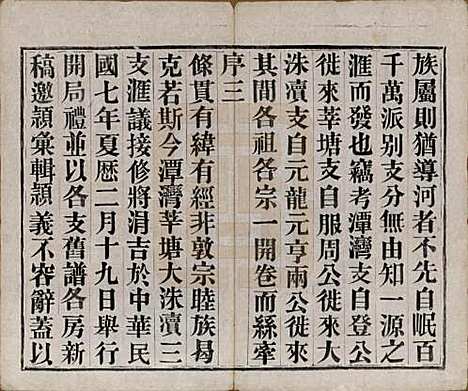 族屬則猶導河者不先自岷百
千萬派别支分無由知一源之
滙而發也竊考潭灣支自登公
徙來莘塘支自服周公徙來大
洙瀆支自元龍元亨兩公徙來
其間各祖各宗一開卷而縣牽
序三
條貫有緯有經非敦宗睦族曷
克若斯今潭灣莘塘大洙瀆三
支滙議接修將涓吉於中華民
國七年夏歷二月十九日舉行
開局禮並以各支舊譜各房新
稿邀頴彙輯頴義不容辭蓋以